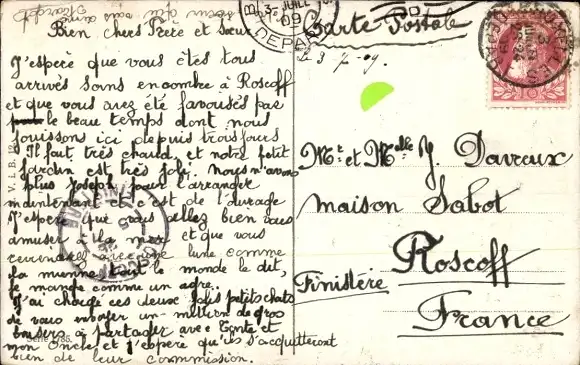 Bien chers Frère et Sœur
J'espère que vous êtes tous
arrivés sans encombre à Roscoff
et que vous avez été favorisés pas
le beau temps dont nous
jouissons ici depuis trois jours
Il fait très chaud et notre petit
jardin est très joli. Nous n'avons
plus Joseph pour l'arranger
maintenant et c'est de l'ouvrage
J'espère que vous allez bien vous
amuser à la mer et que vous
reviendrez avec une lune comme
la mienne tout le monde le dit,
je mange comme un ogre.
J'ai chargé ces deux jolis petits chats
de vous envoyer un million de gros
baisers à partager avec Tante et
mon Oncle et j'espère qu'ils s'acquitteront
bien de leur commission.
V. L. B. 12
Série 1786
Carte Postale
Le 3-7-09.
3 JUIL
09
DEPART
10
Mr et Melle J. Davreux
maison Sabot
Roscoff
Finistère
France